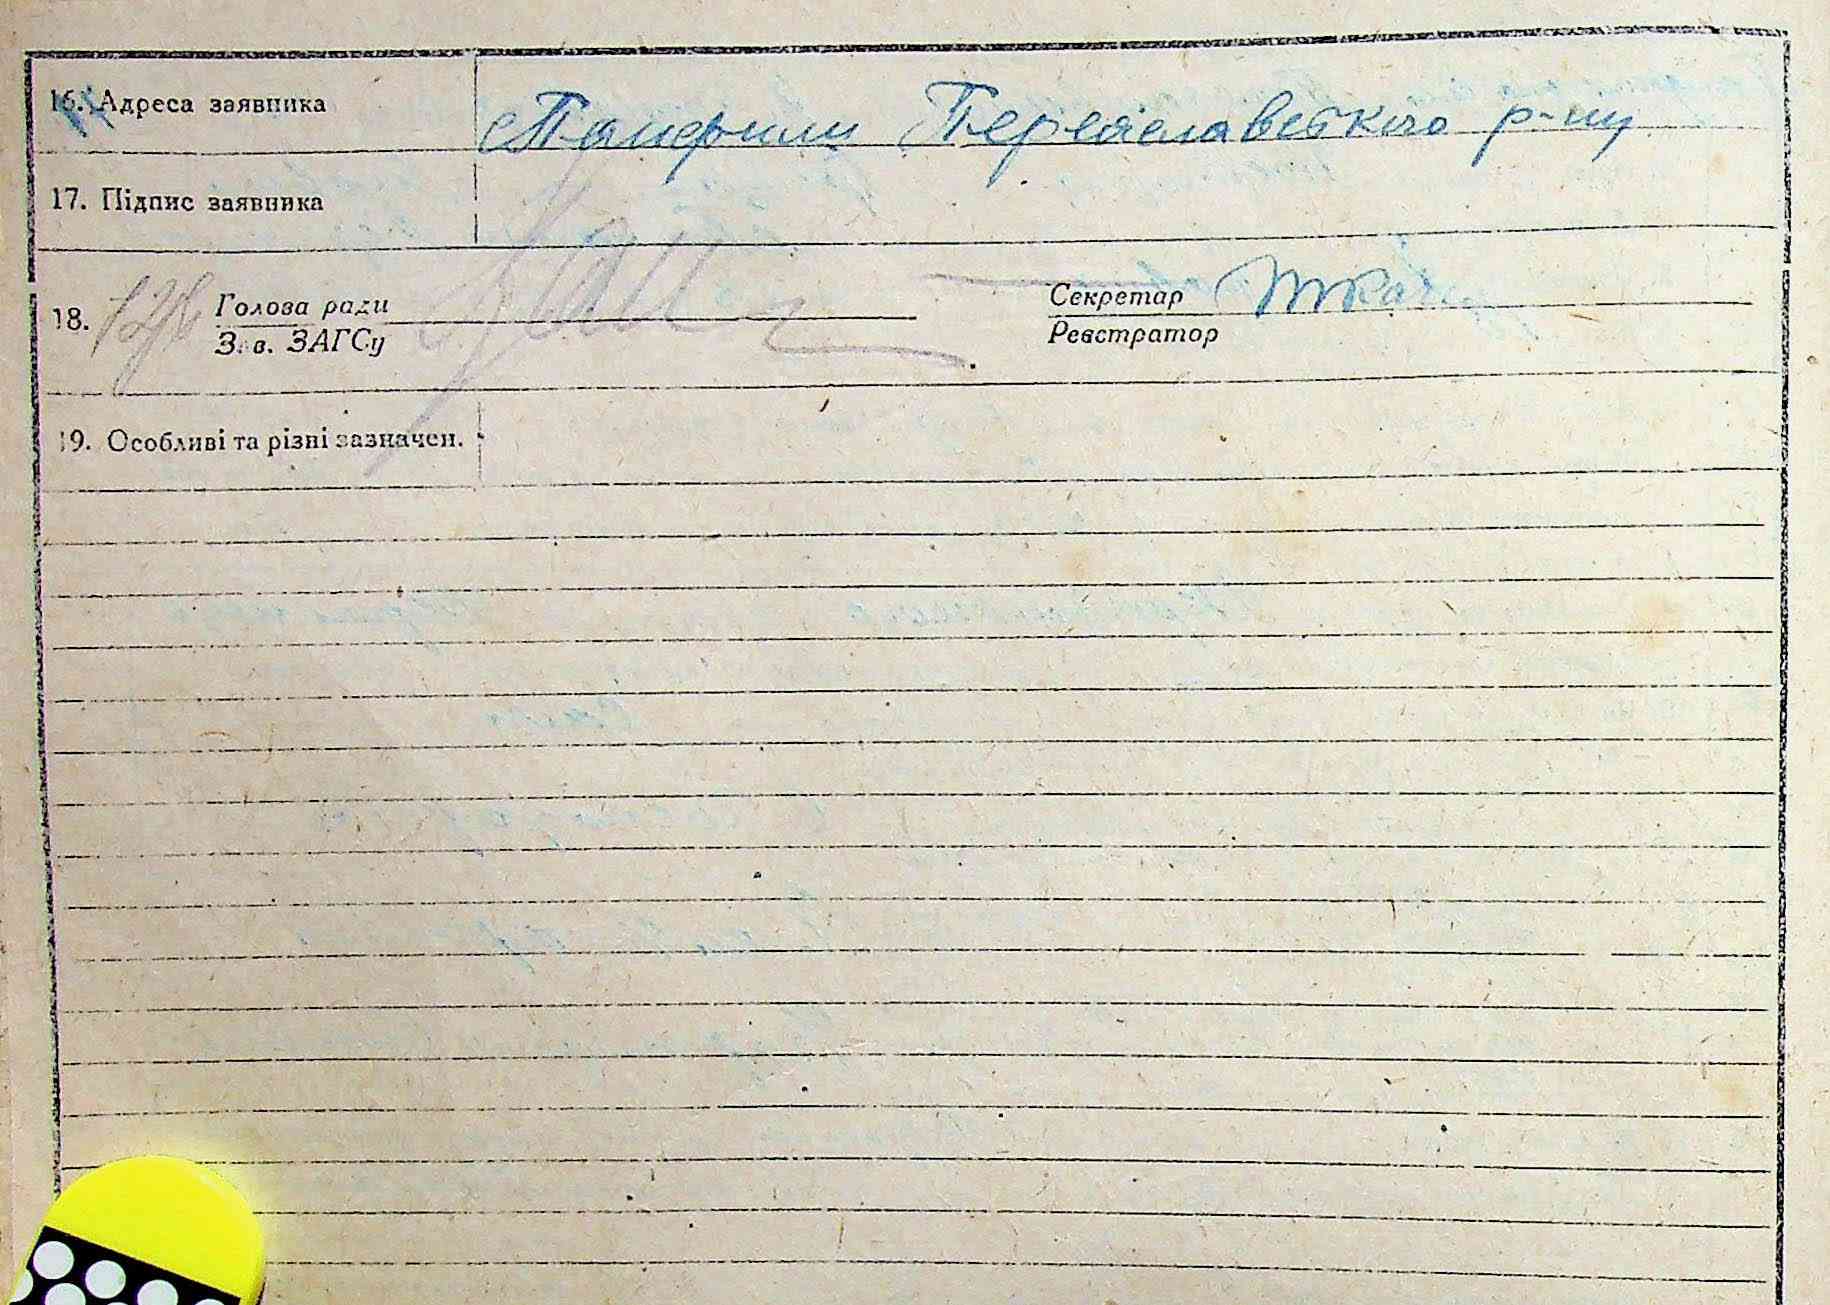 16. Адреса заявника Панфили Переяславского р-ну
17. Підпис заявника
18. Голова ради Секретар Ткач
Зав. ЗАГСу Реєстратор
19. Особливі та різні зазначен.